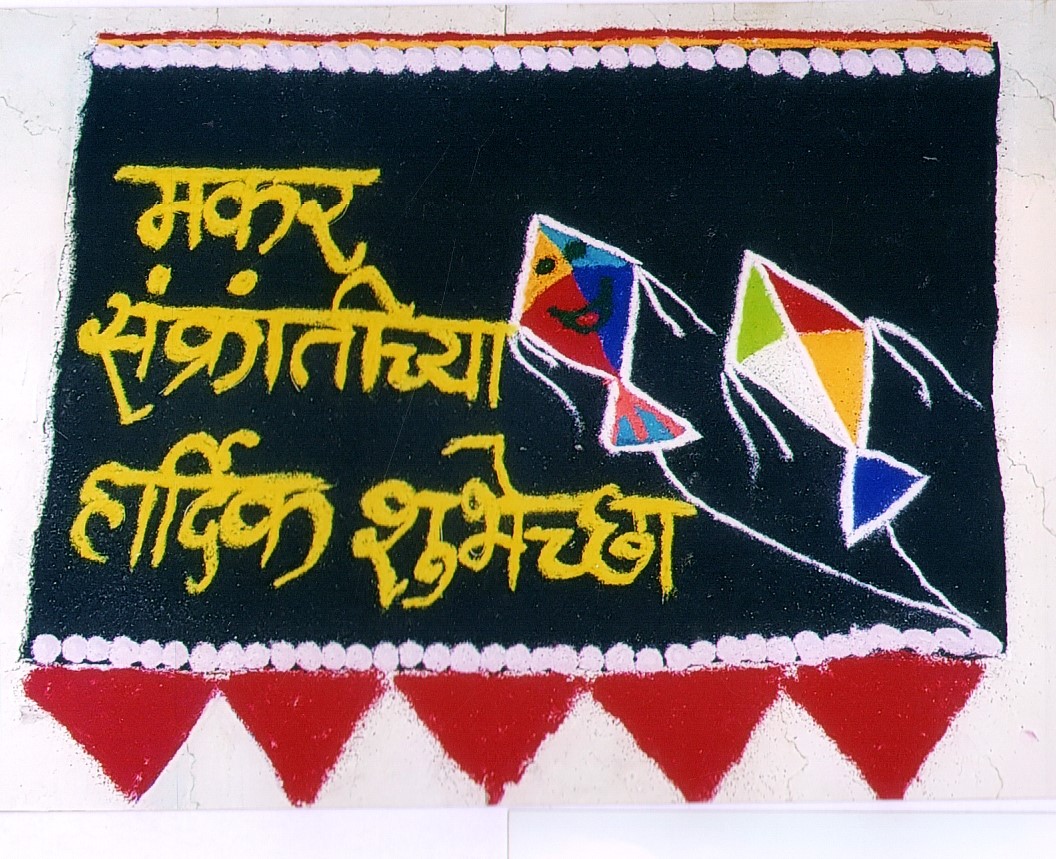 मकर
संक्रांतीच्या
हार्दिक शुभेच्छा